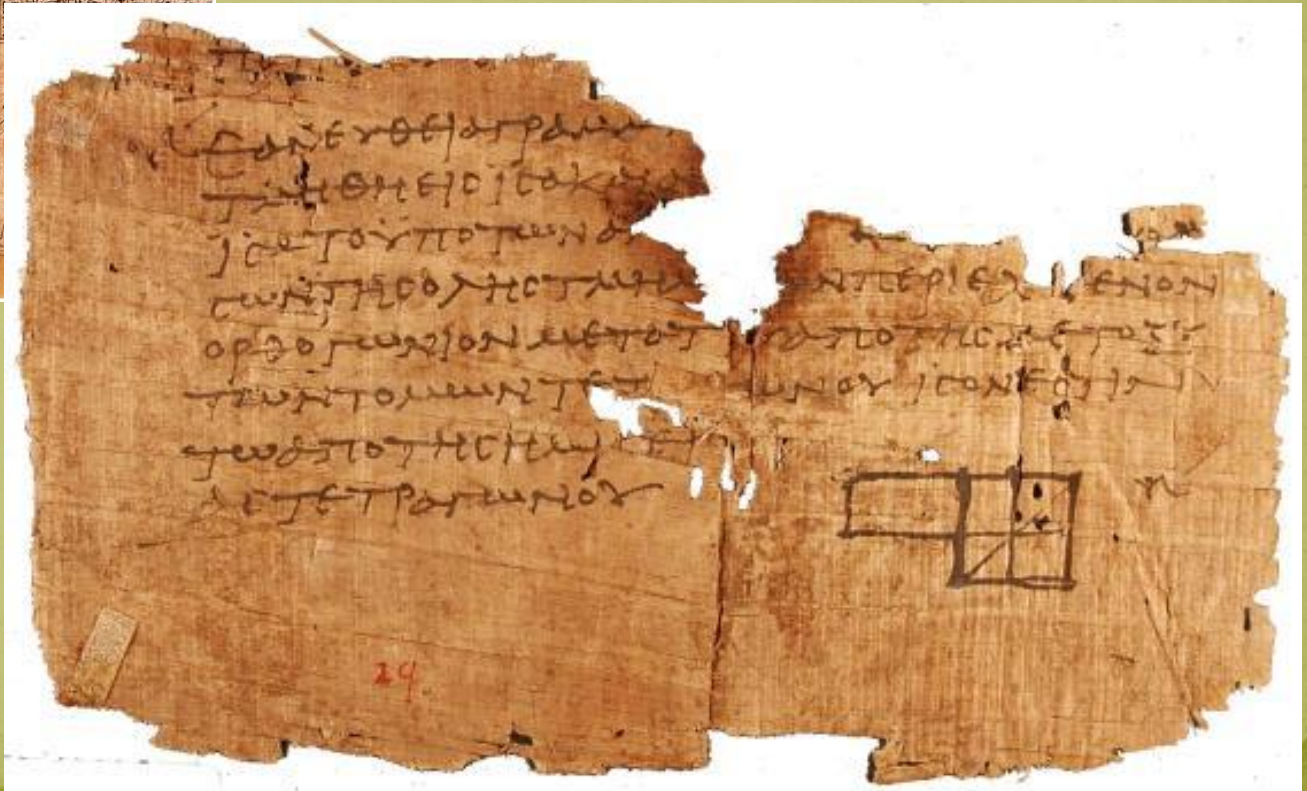 ΕΑΝ ΕΥΘΕΙΑ ΓΡΑΜΜ
ΤΜΗΘΗ ΕΙϹ ΙϹΑ ΚΑΙ Α
ΙϹΑ ΤΟ ΥΠΟ ΤΩΝ Α
ϹΩΝ ΤΗϹ ΟΛΗϹ ΤΜΗΜ Ν ΠΕΡΙΕΧ ΜΕΝΟΝ
ΟΡΘΟΓΩΝΙΟΝ ΜΕΤΑ Τ ΑΠΟ ΤΗϹ ΜΕΤΟΞΥ
ΤΩΝ ΤΟΜΩΝ ΤΕΤ ΩΝΟΥ ΙϹΟΝ ΕϹΤΙΝ
ΤΩ ΑΠΟ ΤΗϹ ΗΜΙ
ΑϹ ΤΕΤΡΑΓΩΝΟΥ
29